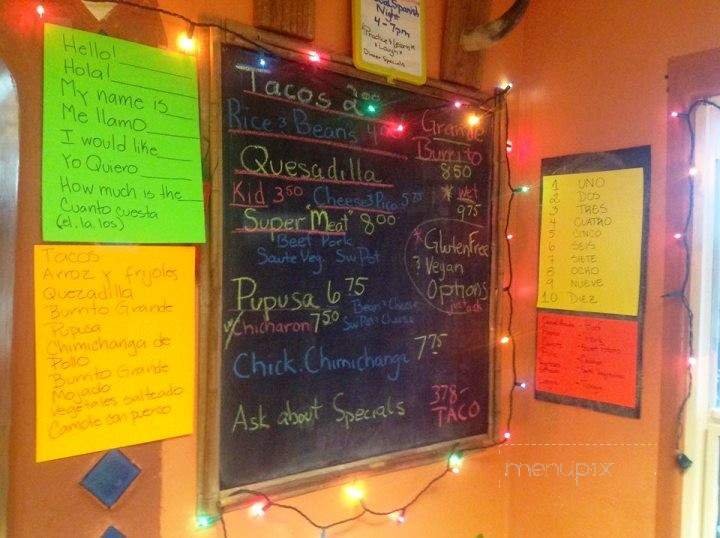 Hello!
Hola!
My name is
Me llamo
I would like
Yo Quiero
How much is the
Cuanto cuesta
(el, la, los)
Tacos
Arroz y frijoles
Quezadilla
Burrito Grande
Pupusa
Chimichanga de
Pollo
Burrito Grande
Mojado
Vegetales salteado
Camote con puerso
Spanish
Night
4-7pm
Dinner Specials
Tacos 2.00
Rice & Beans
Quesadilla
Kid 3.50 Cheese & Pico 5.75
Super "Meat" 8.00
Beef Pork
Saute Veg. Sw Pot
Pupusa 6.75
Bean & Cheese
Sw Pot & Cheese
w/Chicharon 7.50
Chick. Chimichanga 7.75
Ask about Specials
Grande
Burrito
8.50
* Wet
9.75
* Gluten Free
? Vegan
Options
just ask
378-
TACO
1 UNO
2 DOS
3 TRES
4 CUATRO
5 CINCO
6 SEIS
7 SIETE
8 OCHO
9 NUEVE
10 DIEZ
menupix